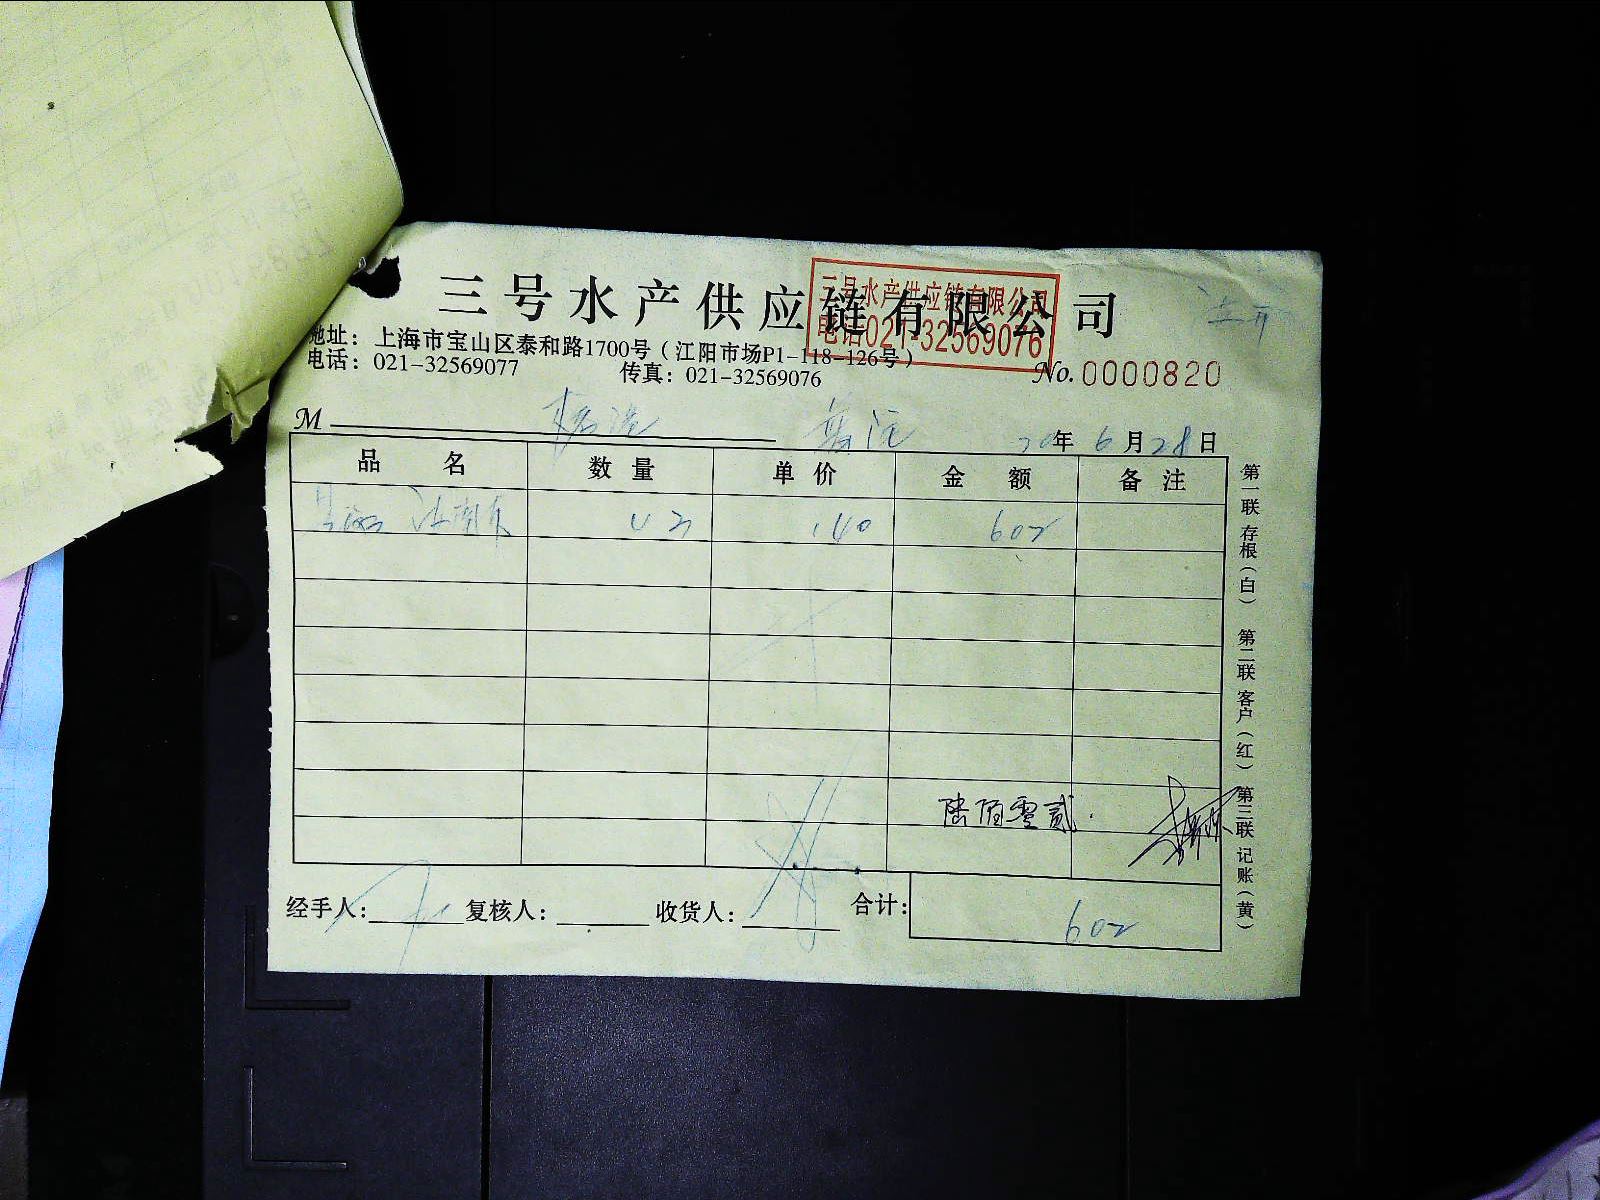 三号水产供应链有限公司
三号水产供应链有限公司
电话021-32569076
地址：上海市宝山区泰和路1700号（江阳市场P1-118-126号）
电话：021-32569077 传真：021-32569076
No.0000820
M
20年6月28日
品名 数量 单价 金额 备注
4.3 140 602
陆佰零贰
经手人： 复核人： 收货人： 合计： 602
第一联 存根（白） 第二联 客户（红） 第三联 记账（黄）